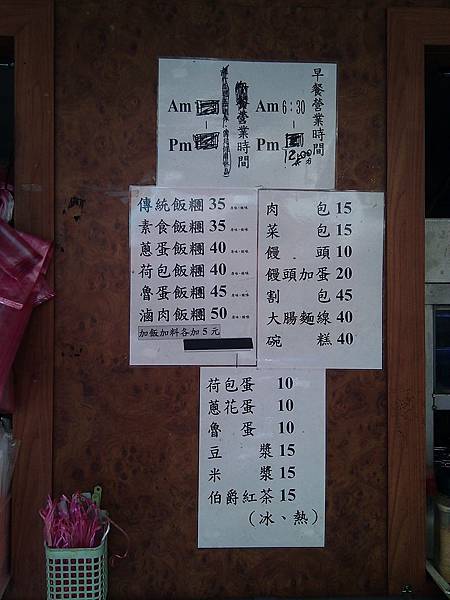 早餐營業時間
Am 6:30
|
Pm 12:00
營業時間
Am
|
Pm
傳統飯糰 35
素食飯糰 35
蔥蛋飯糰 40
荷包飯糰 40
魯蛋飯糰 45
滷肉飯糰 50
加飯加料各加5元
肉包 15
菜包 15
饅頭 10
饅頭加蛋 20
割包 45
大腸麵線 40
碗糕 40
荷包蛋 10
蔥花蛋 10
魯蛋 10
豆漿 15
米漿 15
伯爵紅茶 15
(冰、熱)